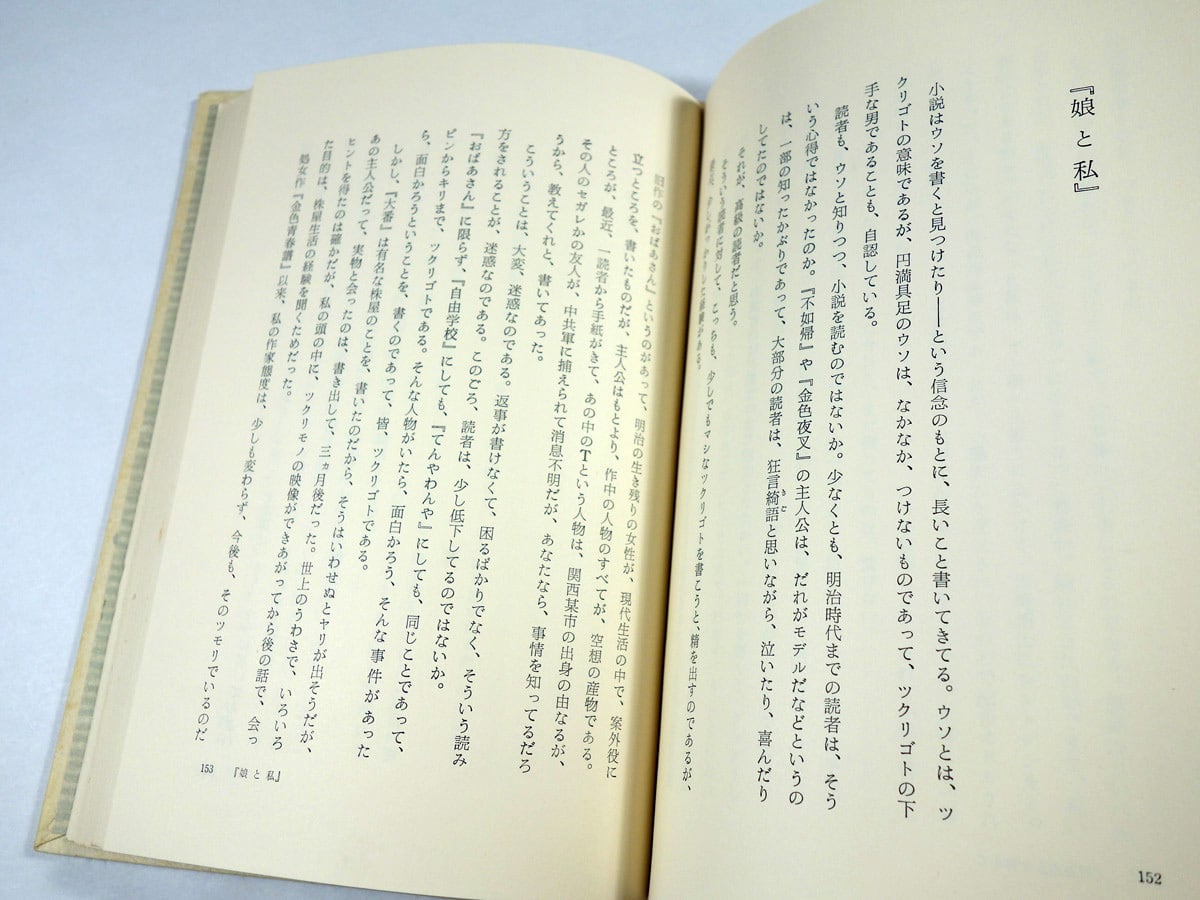 『娘と私』
小説はウソを書くと見つけたり――という信念のもとに、長いこと書いてきてる。ウソとは、ツ
クリゴトの意味であるが、円満具足のウソは、なかなか、つけないものであって、ツクリゴトの下
手な男であることも、自認している。
読者も、ウソと知りつつ、小説を読むのではないか。少なくとも、明治時代までの読者は、そう
いう心得ではなかったのか。『不如帰』や『金色夜叉』の主人公は、だれがモデルだなどというの
は、一部の知ったかぶりであって、大部分の読者は、狂言綺語と思いながら、泣いたり、喜んだり
してたのではないか。
それが、高級の読者だと思う。
そういう読者に対して、こっちも、少しでもマシなツクリゴトを書こうと、精を出すのであるが、
152
旧作の『おばあさん』というのがあって、明治の生き残りの女性が、現代生活の中で、案外役に
立つところを、書いたものだが、主人公はもとより、作中の人物のすべてが、空想の産物である。
ところが、最近、一読者から手紙がきて、あの中のTという人物は、関西某市の出身の由なるが、
その人のセガレかの友人が、中共軍に捕えられて消息不明だが、あなたなら、事情を知ってるだろ
うから、教えてくれと、書いてあった。
こういうことは、大変、迷惑なのである。返事が書けなくて、困るばかりでなく、そういう読み
方をされることが、迷惑なのである。このごろ、読者は、少し低下してるのではないか。
『おばあさん』に限らず、『自由学校』にしても、『てんやわんや』にしても、同じことであって、
ピンからキリまで、ツクリゴトである。そんな人物がいたら、面白かろう、そんな事件があった
ら、面白かろうということを、書くのであって、皆、ツクリゴトである。
しかし、『大番』は有名な株屋のことを、書いたのだから、そうはいわせぬとヤリが出そうだが、
あの主人公だって、実物と会ったのは、書き出して、三ヵ月後だった。世上のうわさで、いろいろ
ヒントを得たのは確かだが、私の頭の中に、ツクリモノの映像ができあがってから後の話で、会っ
た目的は、株屋生活の経験を聞くためだった。
処女作『金色青春譜』以来、私の作家態度は、少しも変わらず、今後も、そのツモリでいるのだ
153 『娘と私』